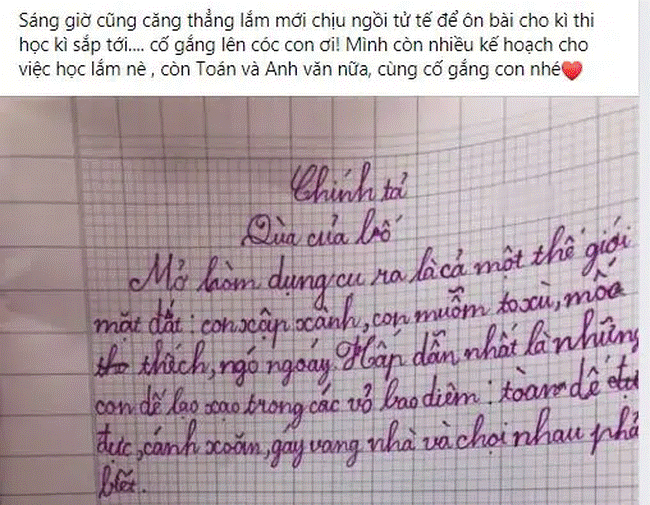 Sáng giờ cũng căng thẳng lắm mới chịu ngồi tử tế để ôn bài cho kì thi
học kì sắp tới.... cố gắng lên cóc con ơi! Mình còn nhiều kế hoạch cho
việc học lắm nè , còn Toán và Anh văn nữa, cùng cố gắng con nhé❤️
Chính tả
Qùa của bố
Mở hòm dụng cu ra là cả một thế giới
mặt đất : con xập xành, con muỗm to xù, mốc
tho thách, ngó ngoáy. Hấp dẫn nhất là những
con dế lạo xạo trong các vỏ bao diêm : toàn dế
đực, cánh xoăn, gáy vang nhà và chọi nhau phả
biết.